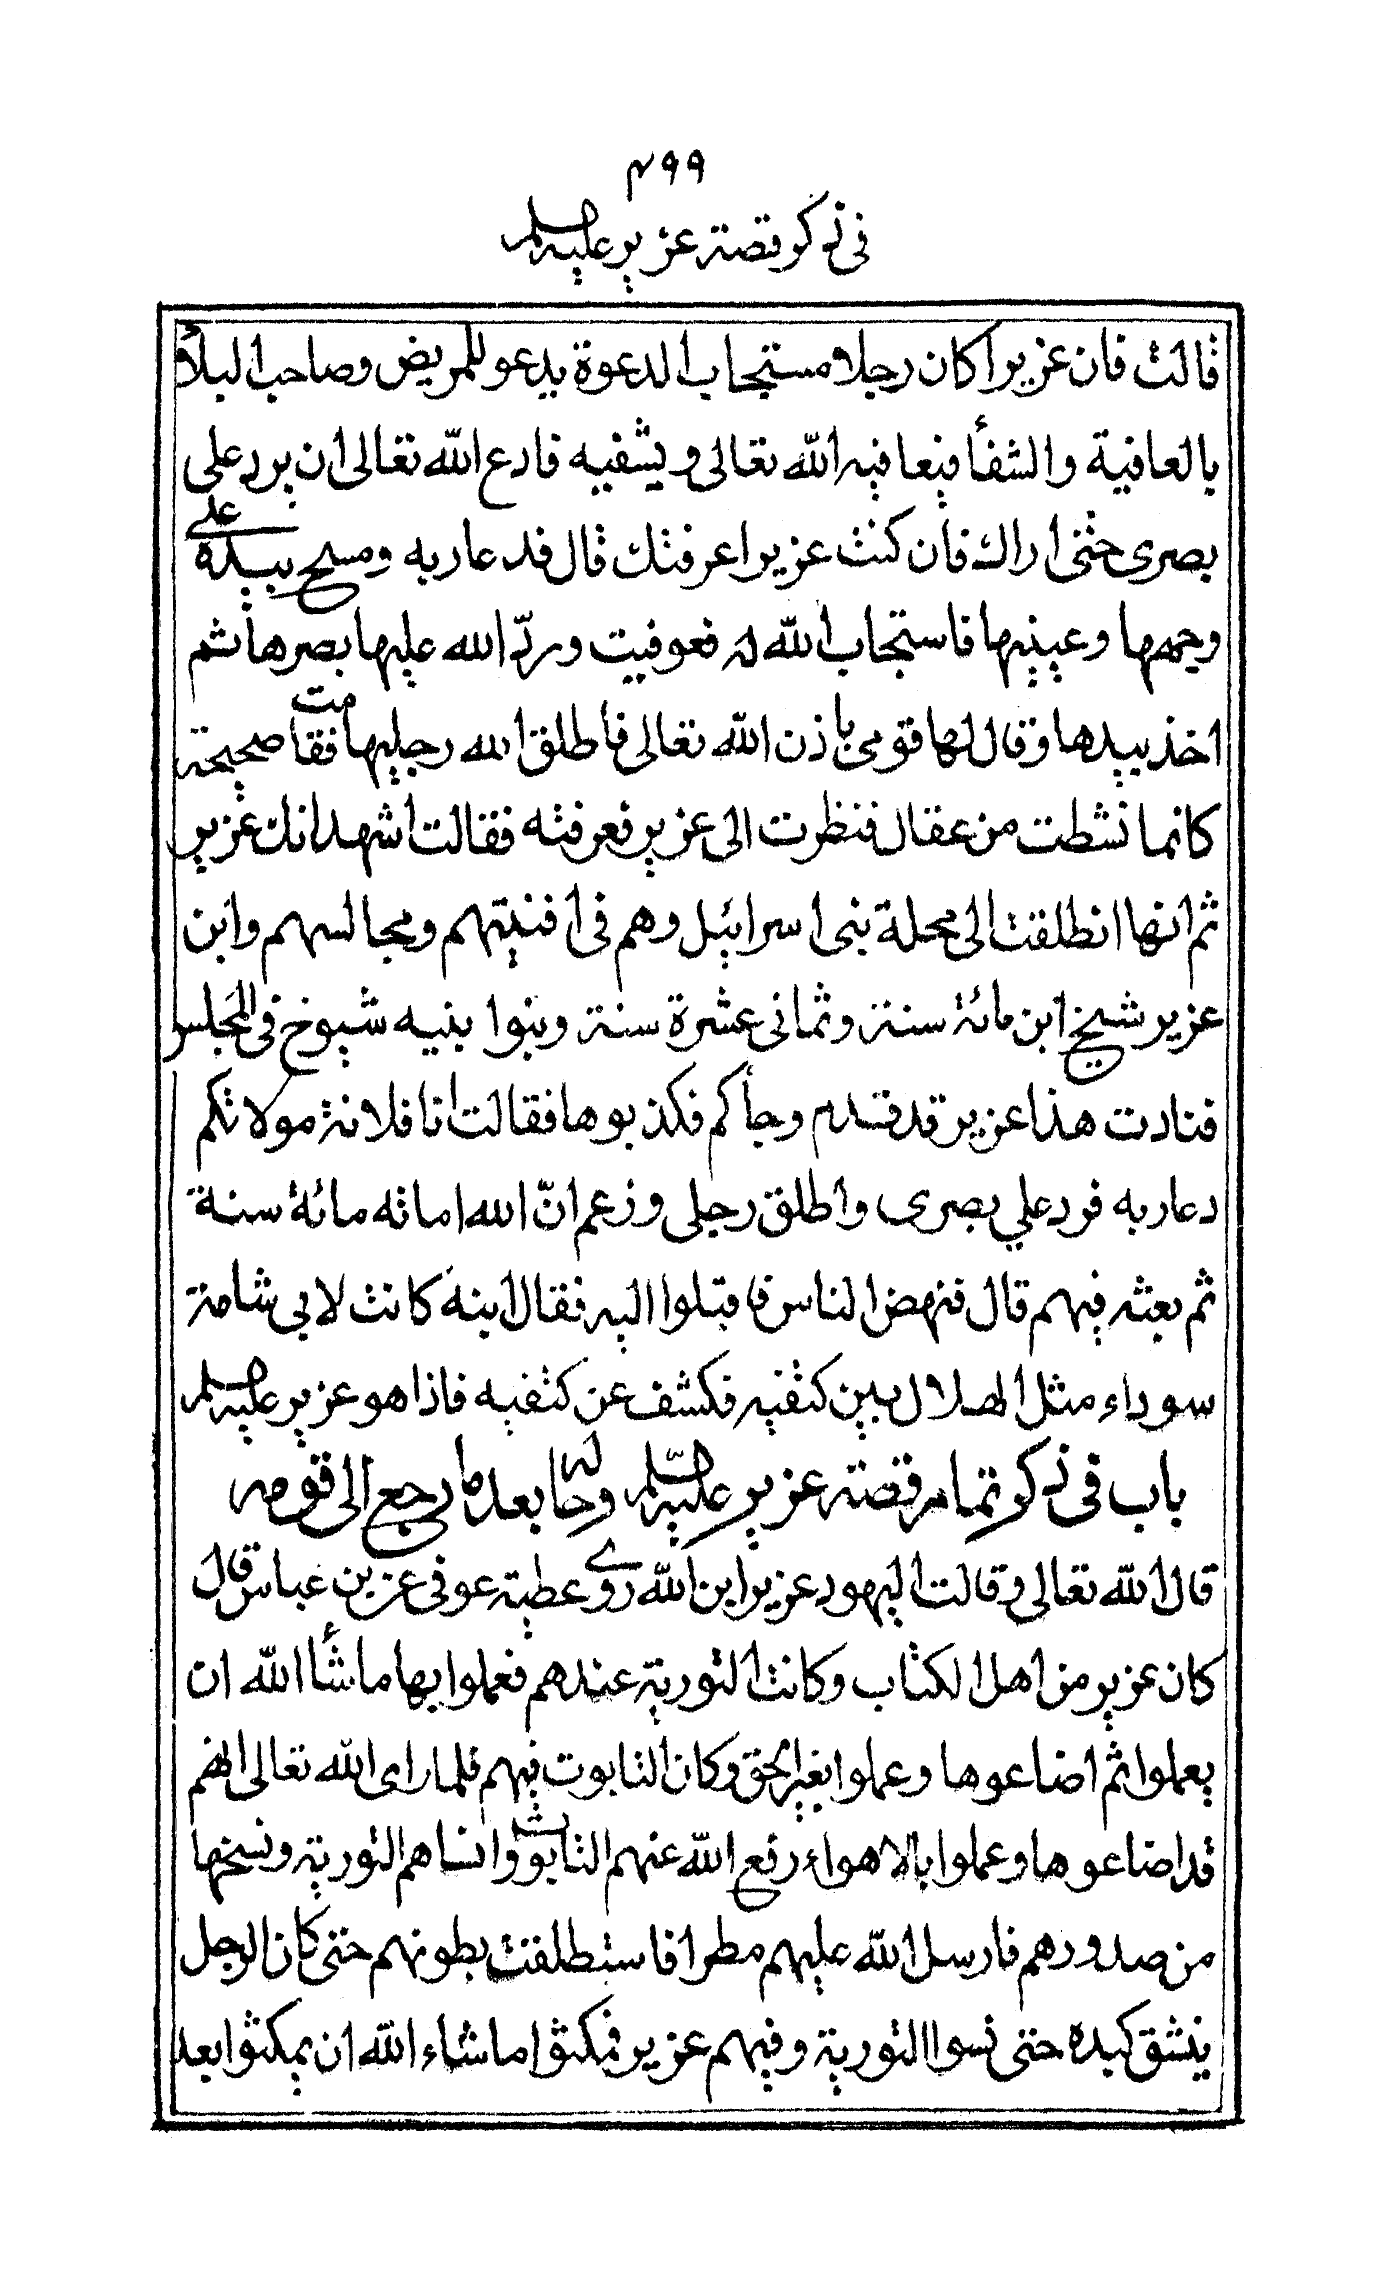 ٤٩٩
في ذكر قصة عزير عليه السلم
قالت فان عزيرا كان رجلا مستجاب الدعوة يدعو للمريض وصاحب البلأ
بالعافية والشفأ فيعافيه الله تعالى ويشفيه فادع الله تعالى ان يرد على
بصرى حتى اراك فان كنت عزيرا عرفتك قال فدعا ربه ومسح بيده على
وجهها وعينيها فاستجاب الله له فعوفيت وردّ الله عليها بصرها ثم
اخذ بيدها وقال لها قومى باذن الله تعالى فاطلق الله رجليها فقامت صحيحة
كانما نشطت من عقال فنظرت الى عزير فعرفته فقالت اشهد انك عزير
ثم انها انطلقت الى محلة بنى اسرائيل وهم فى افنيتهم ومجالسهم وابن
عزير شيخ ابن مائة سنة وثمانى عشرة سنة وبنوا بنيه شيوخ فى المجلس
فنادت هذا عزير قد قدم وجأكم فكذبوها فقالت انا فلانة مولاتكم
دعا ربه فرد علي بصرى واطلق رجلى وزعم انّ الله اماته مائة سنة
ثم بعثه فيهم قال فنهض الناس فاقبلوا اليه فقال ابنه كانت لابى شامة
سوداء مثل الهلال بين كتفيه فكشف عن كتفيه فاذا هو عزير عليه السلم
باب فى ذكر تمام قصة عزير عليه السلم وحاله بعد ما رجع الى قومه
قال الله تعالى وقالت اليهود عزير ابن الله روى عطية عوفى عن بن عباس قال
كان عزير من اهل الكتاب وكانت التورية عندهم فعملوا بها ما شأ الله ان
يعملوا ثم اضاعوها وعملوا بغير الحق وكان التابوت فيهم فلما راى الله تعالى انهم
قد اضاعوها وعملوا بالاهواء رفع الله عنهم التابوت وانساهم التورية ونسخها
من صدورهم فارسل الله عليهم مطرا فاستطلقت بطونهم حتى كان الرجل
ينشق كبده حتى نسوا التورية وفيهم عزير فمكثوا ما شاء الله ان يمكثوا بعد